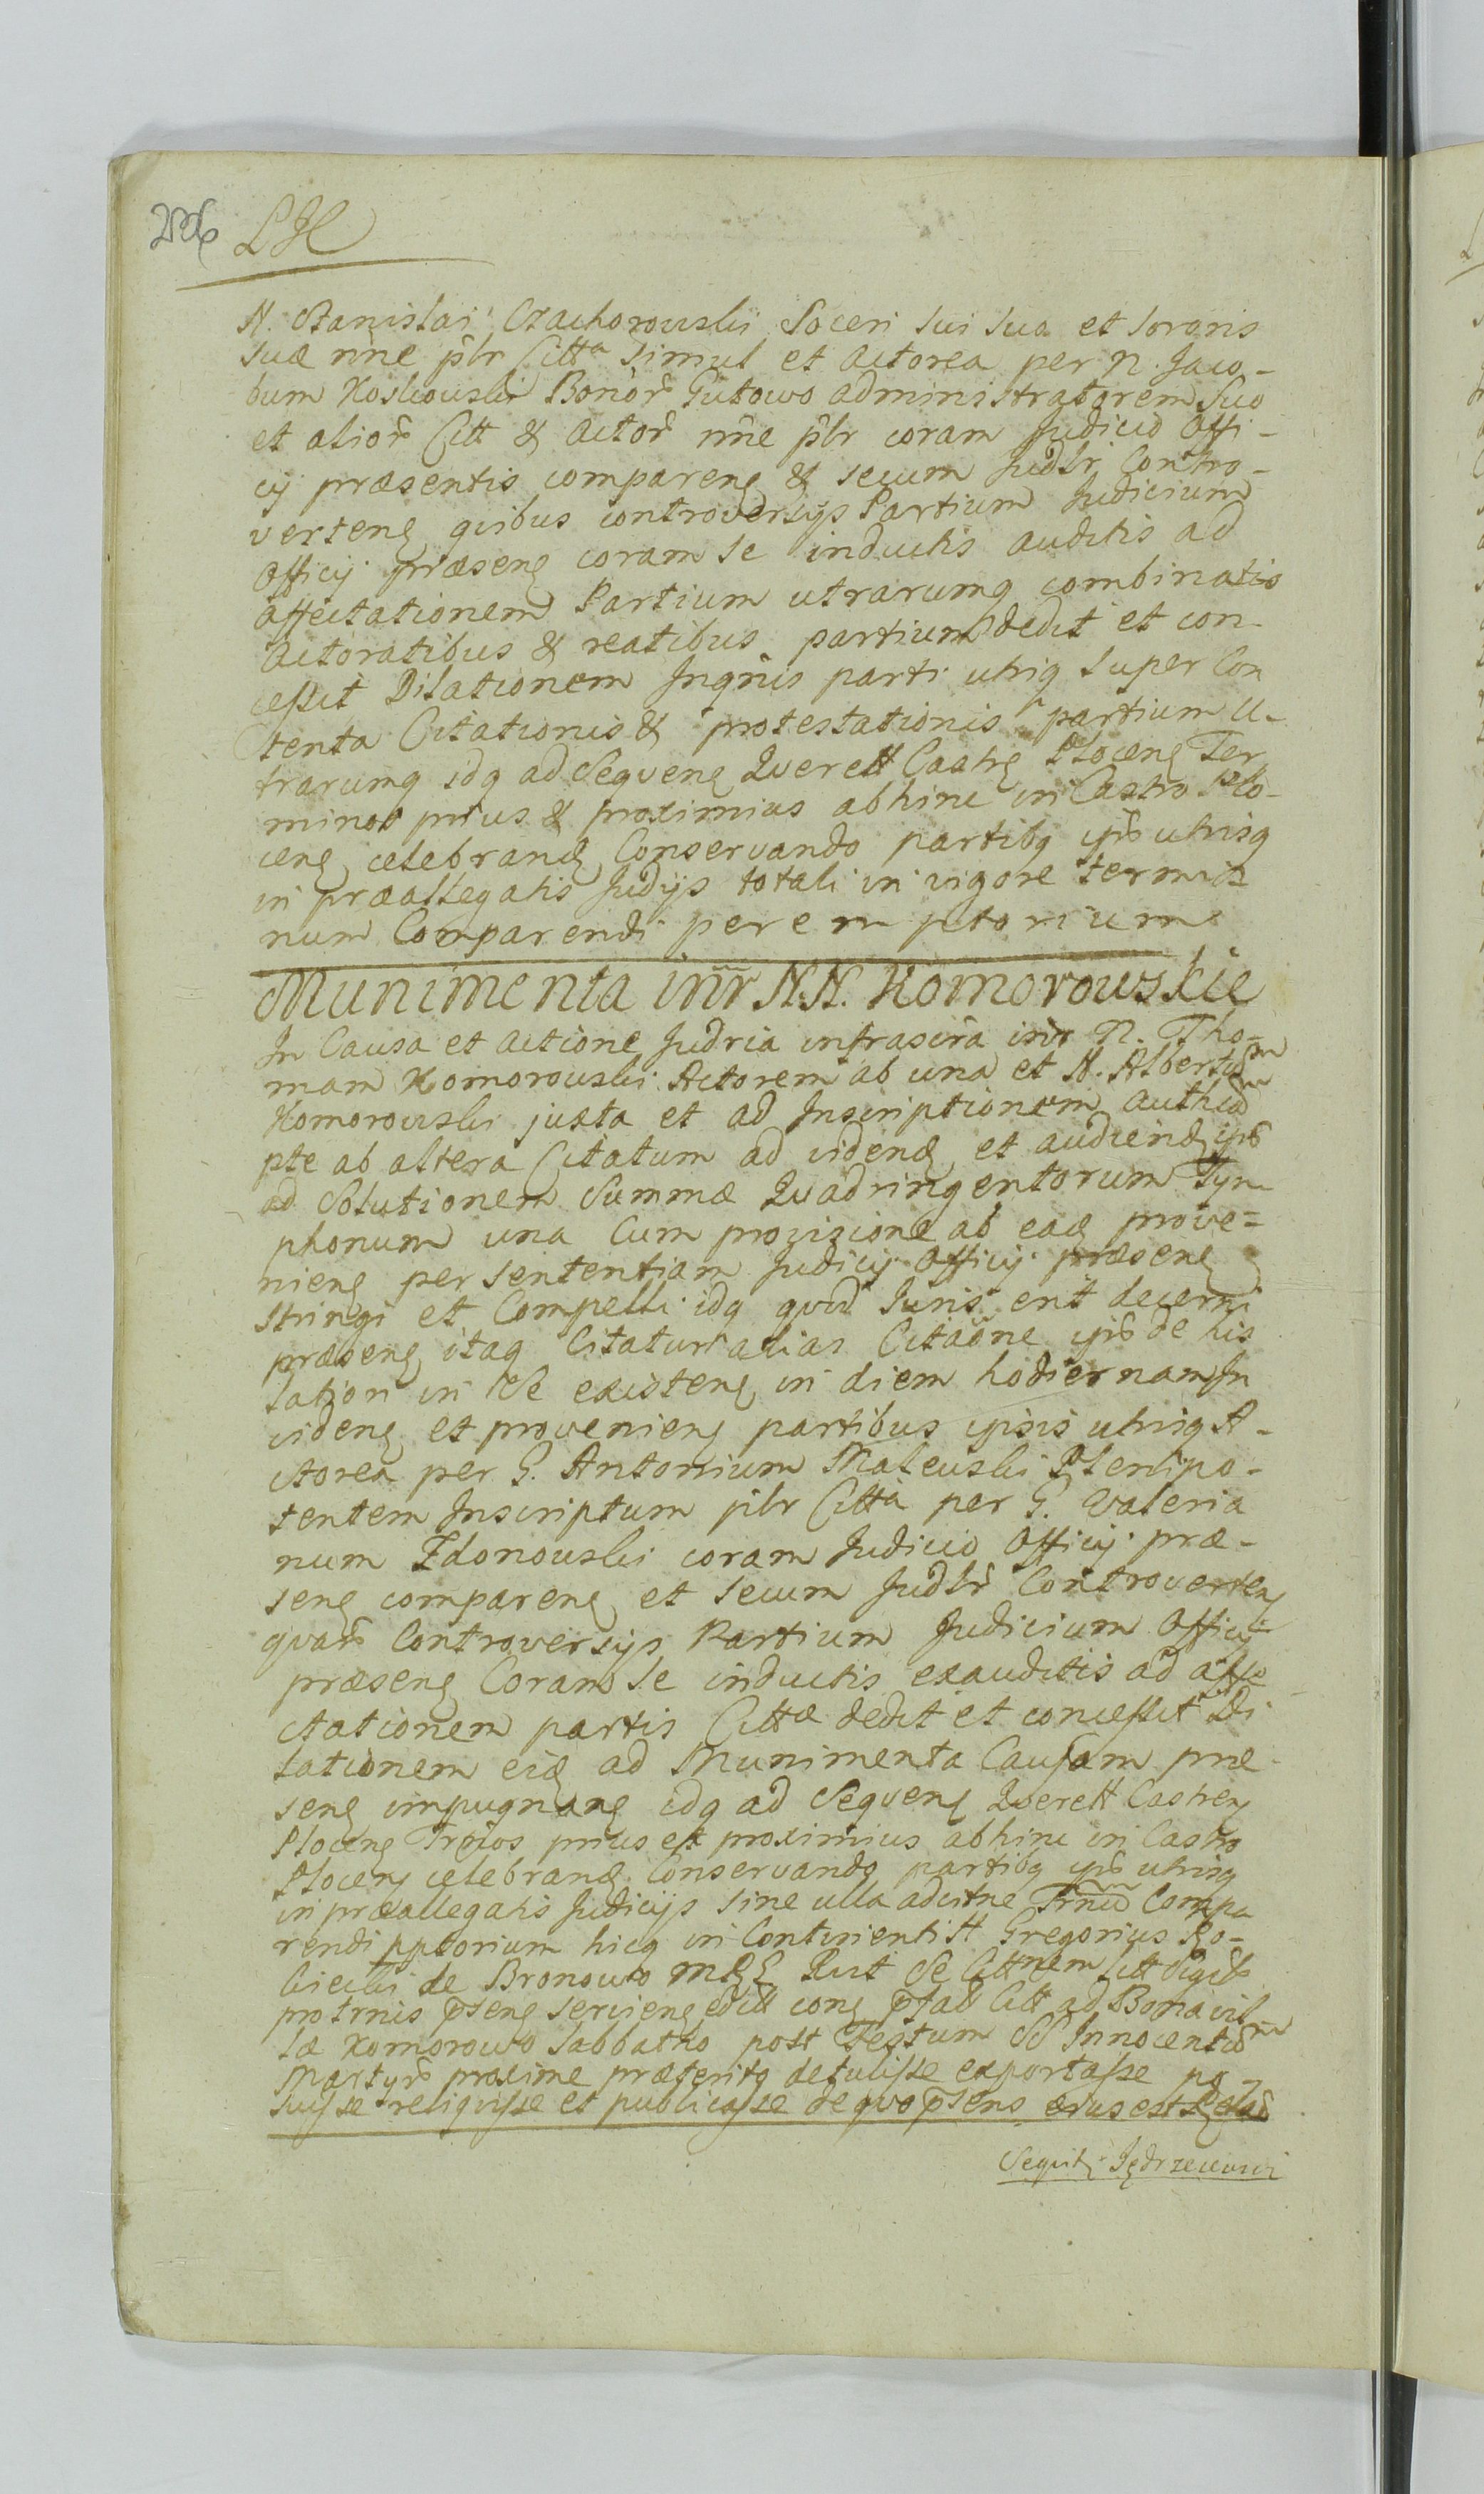 LH
N. Stanislai Czachorowski Soceri sui sua et sororis
suæ nñe plr Citta simul et Actorea per N. Jaco-
bum Koskowski Bonor Gutowo administratorem suo
et alior Citt & Actor nñe plr coram Judicio Offi-
cij præsentis comparenę & secum Judlr Contro-
vertenę qvibus controversijs Partium Judicium
Officij præsenę coram se inductis auditis ad
affectationem Partium utrarumq combinatis
actoratibus & reatibus partium dedit et con-
cessit Dilationem Inqnis parti utriq super Con
tenta Citationis & protestationis partium u-
trarumq idq ad Seqvenę Qverell Castrę Plocenę Ter
minos prius & proximius abhinc in Castro Plo-
cenę celebrandę Conservando partibq ips utrisq
in præallegatis Judijs totali in vigore termi-
num Comparendi peremptorium
Munimenta inr N.N. Komorowskie
In Causa et actione Judria infrascra inr N. Tho-
mam Komorowski Actorem ab una et N. Albertum
Komorowski juxta et ad Inscriptionem authcam
pte ab altera Citatum ad videndę et audiendę ips
ad Solutionem Summæ Qvadringentorum Tym
phonum una cum provisione ab eadę prove=
nienę per sententiam Judicij Officij præsenę
stringi et Compelli idq qvid Juris erit decerni
præsenę itaq Citatur alias Citaone ips de his
lation in se existenę in diem hodiernam In
cidenę et provenienę partibus ipsis utrisq A-
ctorea per G. Antonium Maleuski Plenipo-
tentem Inscriptum plr Citta per G. Valeria
num Zdonowski coram Judicio Officij præ-
senę comparenę et secum Judlr Controvertenę
qvar Controversijs Partium Judicium Officij
præsenę Coram se inductis exauditis ad affe
ctationem partis Cittæ dedit et concessit Di
lationem eidę ad Munimenta Causam præ-
senę impugnanę idq ad Seqvenę Qverell Castrenę
Plocenę Trmos prius et proximius abhinc in Castro
Plocenę celebrandę Conservando partibq ips utrisq
in præallegatis Judicijs sine ulla adcitne Trnum Compa
rendi pptorium hicq in Continenti H Gregorius Ro-
ciecki de Bronowo
pro trmis psenę servienę
læ Komorowo Sabbatho post Festum SS Innocentum
Martyr proxime præterito detulisse exportasse po-
suisse reliquisse et publicasse de qvo psens ejus est Relat
Seqvitę Jędrzeiewi